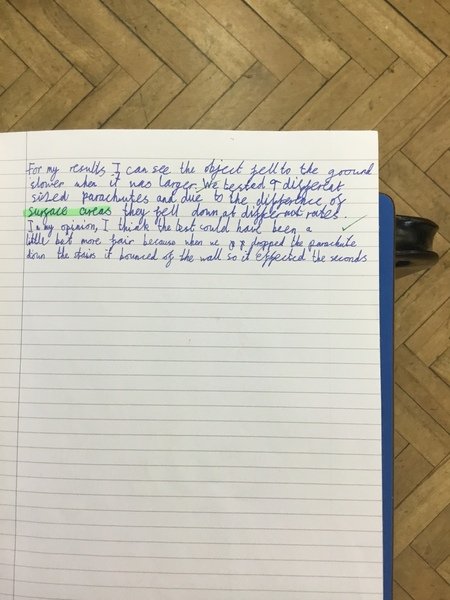 For my results I can see the object fell to the ground
slower when it was larger. We tested 4 different
sized parachutes and due to the difference of
surface areas they fell down at different rates
In my opinion, I think the test could have been a
little bit more fair because when we dropped the parachute
down the stairs it bounced of the wall so it effected the seconds